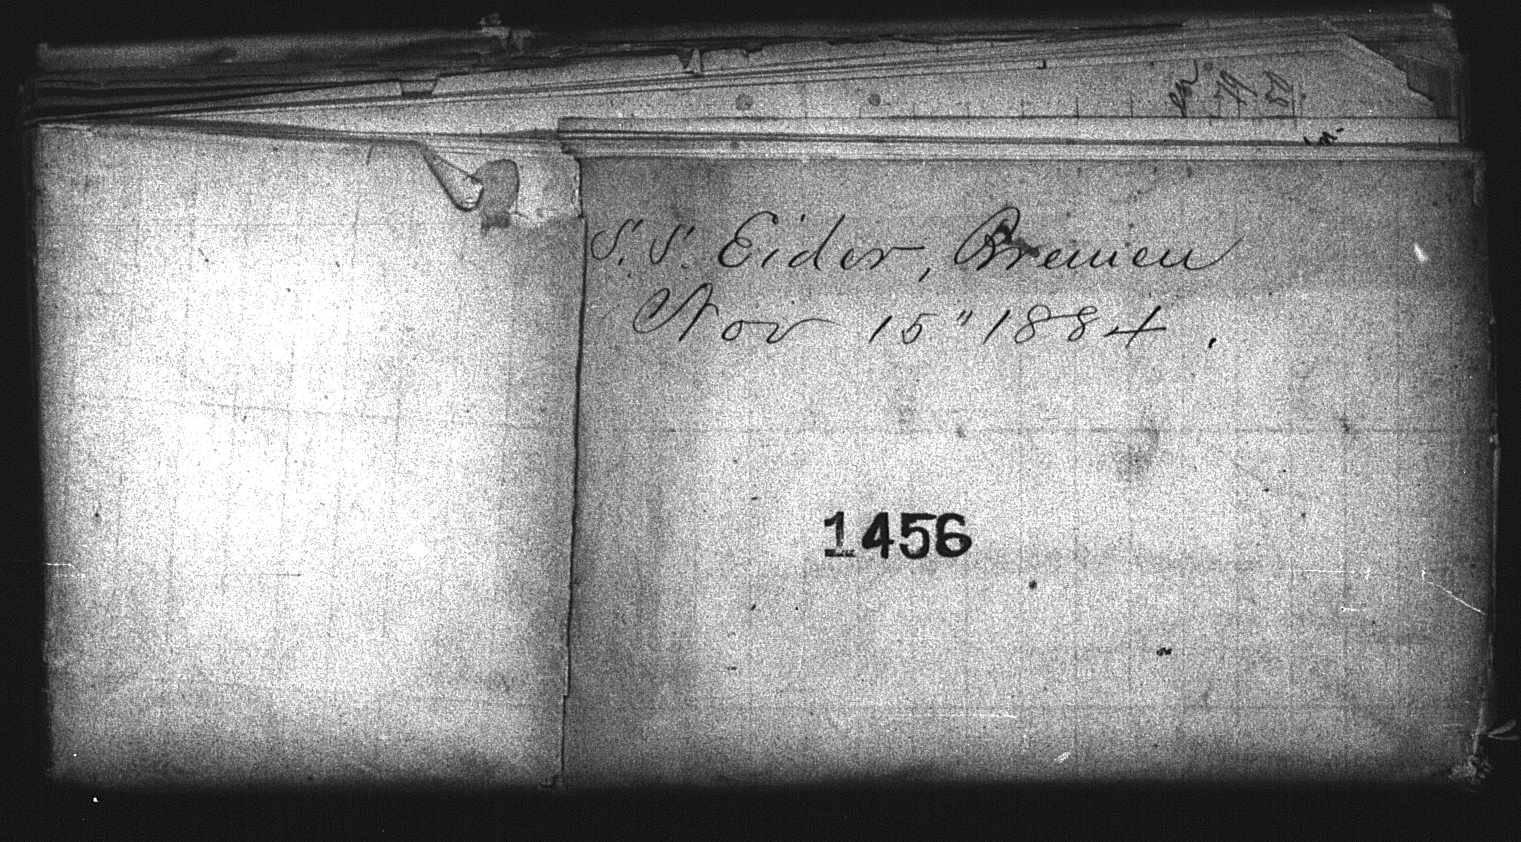 S.S. Eider, Bremen
Nov 15" 1884.
1456